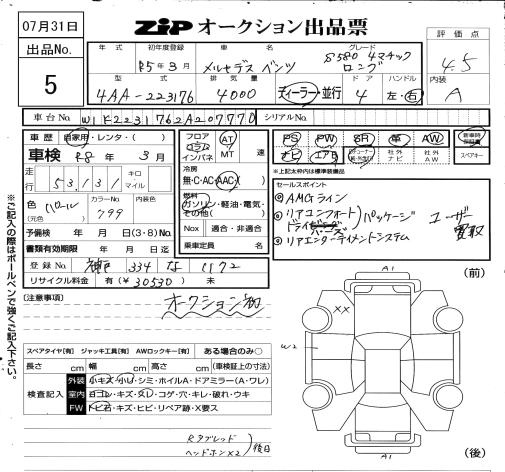 07月31日
ZIP オークション出品票
出品No.
5
評価点
4.5
内装
A
年式 初年度登録 車名 グレード
R5年3月 メルセデス ベンツ S580 4マチック ロング
型式 排気量 ドア ハンドル
4AA-223176 4000 ディーラー・並行 4 左・右
車台No. W1K2231762A207770 シリアルNo.
車歴 自家用・レンタ・( )
車検 R8年3月
走行 53,131 キロ マイル
色 (元色) パール カラーNo. 799 内装色
予備検 年 月 日(3・8)No.
書類有効期限 年 月 日迄
登録No. 神戸 334 な 1172
リサイクル料金 有(¥30530) 未
フロア コラム インパネ AT MT 速
冷房 無・C・AC・AAC・( )
燃料 ガソリン・軽油・電気・その他( )
Nox 適合・非適合
乗車定員 名
PS PW SR 革 AW 新車時保証書
ナビ エアB 社外ナビ 社外AW スペアキー
※上記太枠内は標準装備品
セールスポイント
AMGライン
リアコンフォート パッケージ
リアエンターテイメントシステム
ユーザー買取
(注意事項)
オークション初
スペアタイヤ[有] ジャッキ工具[有] AWロックキー[有] ある場合のみ○
長さ cm 幅 cm 高さ cm (車検証上の寸法)
検査記入
外装 小キズ・小U・シミ・ホイルA・ドアミラー(A・ワレ)
室内 ヨゴレ・キズ・スレ・コゲ・穴・キレ・破れ・ウキ
FW トビ石・キズ・ヒビ・リペア跡・X要ス
Rタブレット
ヘッドホン×2 後日
※ご記入の際はボールペンで強くご記入下さい。
(前)
A1
XX
W2
A1
(後)